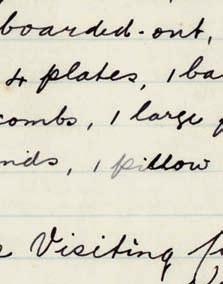 boarded-out,
4 plates, 1 ba
combs, 1 large
nds, 1 pillow
Visiting